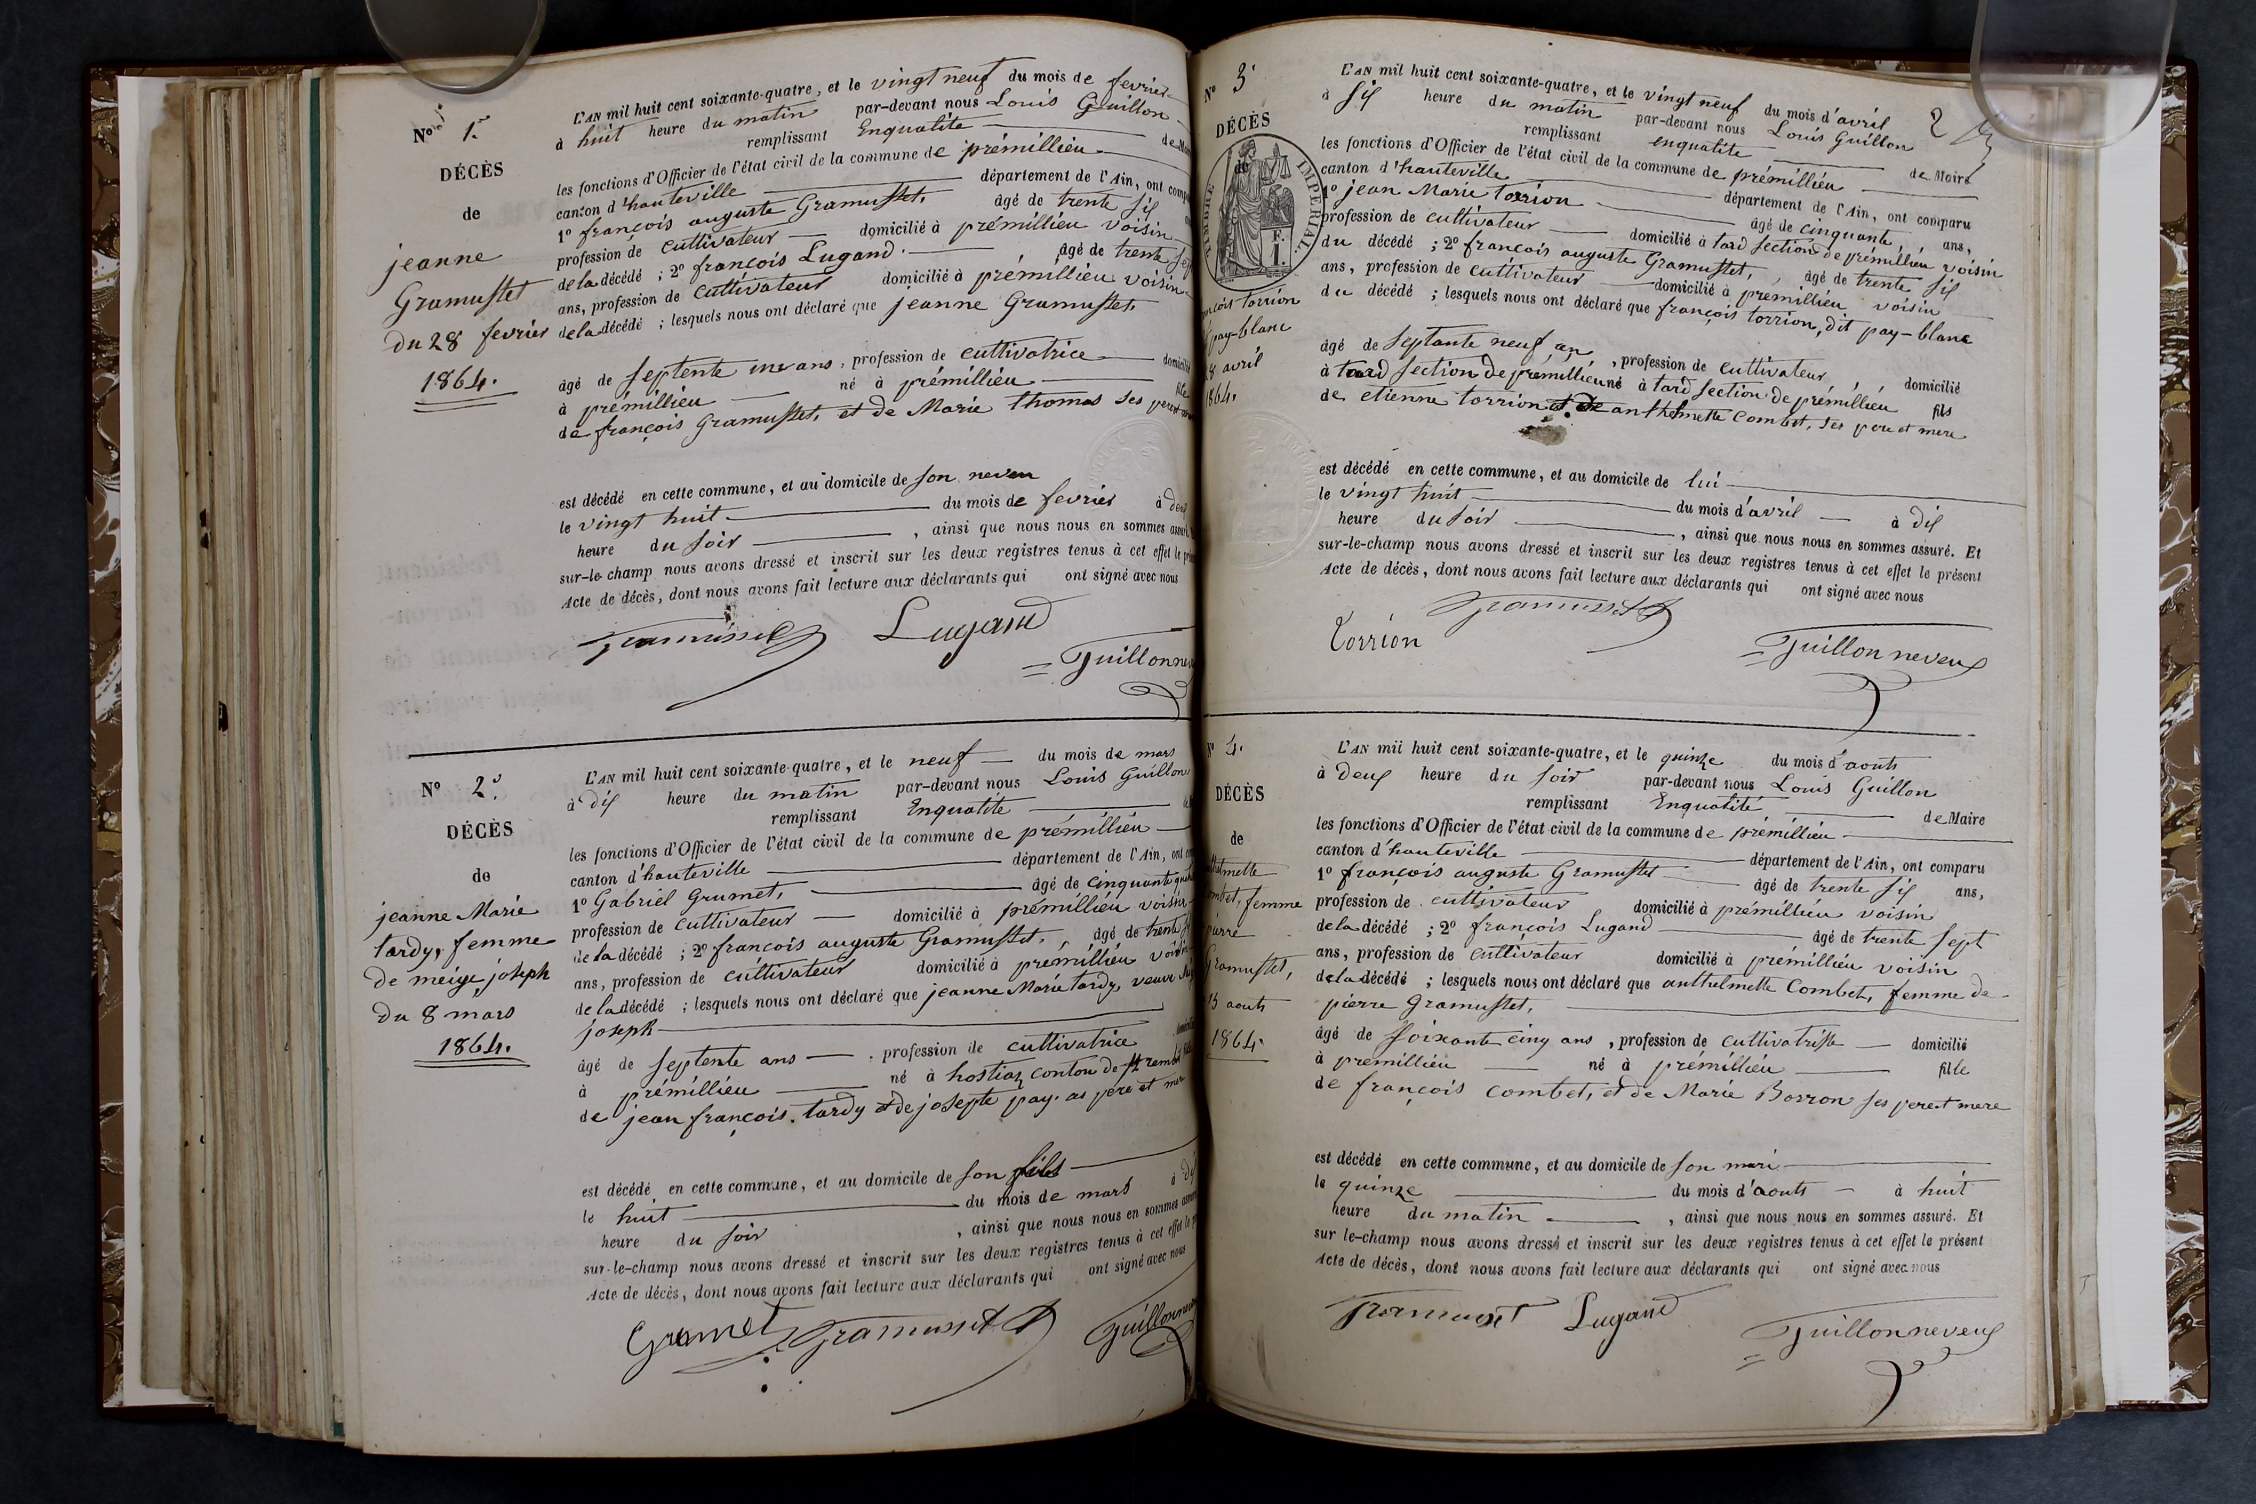 N° 1er
DÉCÈS
de
jeanne
Gramusset
du 28 fevrier
1864.
L'AN mil huit cent soixante-quatre, et le vingt neuf du mois de fevrier
à huit heure du matin par-devant nous Louis Guillon
remplissant Enqualité de
les fonctions d'Officier de l'état civil de la commune de prémillieu
canton d'hauteville département de l'Ain, ont
1° françois auguste Gramusset, âgé de trente six
profession de cultivateur domicilié à prémillieu voisin
de la décédé ; 2° françois Lugand. âgé de trente
ans, profession de cultivateur domicilié à prémillieu voisin
de la décédé ; lesquels nous ont déclaré que jeanne Gramusset,
âgé de septente une ans, profession de cultivatrice
à prémillieu né à prémillieu fille
de françois Gramusset, et de Marie thomas ses pere
est décédé en cette commune, et au domicile de son neveu
le vingt huit du mois de fevrier à
heure du soir , ainsi que nous nous en sommes
sur-le-champ nous avons dressé et inscrit sur les deux registres tenus à cet effet le
Acte de décès, dont nous avons fait lecture aux déclarants qui ont signé avec nous
Gramusset Lugand
Guillon
N° 2e
DÉCÈS
de
jeanne Marie
tardy, femme
de meige joseph
du 8 mars
1864.
L'AN mil huit cent soixante-quatre, et le neuf du mois de mars
à dix heure du matin par-devant nous Louis Guillon
remplissant Enqualité
les fonctions d'Officier de l'état civil de la commune de prémillieu
canton d'hauteville département de l'Ain, ont
1° Gabriel Grumet, âgé de cinquante
profession de cultivateur domicilié à prémillieu voisin
de la décédé ; 2° francois auguste Gramusset, âgé de trente
ans, profession de cultivateur domicilié à prémillieu voisin
de la décédé ; lesquels nous ont déclaré que jeanne Marie tardy, veuve
joseph
âgé de septente ans , profession de cultivatrice
à prémillieu né à hostiaz conton de
de jean françois tardy et de josepte pay. as pere et
est décédé en cette commune, et au domicile de son fils
le huit du mois de mars à
heure du soir , ainsi que nous nous en sommes
sur-le-champ nous avons dressé et inscrit sur les deux registres tenus à cet effet le
Acte de décès, dont nous avons fait lecture aux déclarants qui ont signé avec nous
Grumet Gramusset Guillon
2
N° 3e
DÉCÈS
de
TIMBRE IMPÉRIAL.
1 F.
torrion
pay-blanc
avril
1864.
L'AN mil huit cent soixante-quatre, et le vingt neuf du mois d'avril
à six heure du matin par-devant nous Louis Guillon
remplissant enqualité de Maire
les fonctions d'Officier de l'état civil de la commune de prémillieu
canton d'hauteville département de l'Ain, ont comparu
1° jean Marie torrion âgé de cinquante, ans,
profession de cultivateur domicilié à tard section de prémillieu voisin
du décédé ; 2° francois auguste Gramusset, âgé de trente six
ans, profession de cultivateur domicilié à prémillieu voisin
du décédé ; lesquels nous ont déclaré que françois torrion, dit pay-blanc
âgé de septante neuf an , profession de cultivateur domicilié
à tard section de prémillieu né à tard section de prémillieu fils
de etienne torrion et de anthelmette Combet, ses pere et mere
est décédé en cette commune, et au domicile de lui
le vingt huit du mois d'avril à dix
heure du soir , ainsi que nous nous en sommes assuré. Et
sur-le-champ nous avons dressé et inscrit sur les deux registres tenus à cet effet le présent
Acte de décès, dont nous avons fait lecture aux déclarants qui ont signé avec nous
Torrion Gramusset
Guillon neveu
4.
DÉCÈS
de
femme
pierre
Gramusset,
aouts
1864.
L'AN mil huit cent soixante-quatre, et le quinze du mois d'aouts
à deux heure du soir par-devant nous Louis Guillon
remplissant Enqualité de Maire
les fonctions d'Officier de l'état civil de la commune de prémillieu
canton d'hauteville département de l'Ain, ont comparu
1° françois auguste Gramusset âgé de trente six ans,
profession de cultivateur domicilié à prémillieu voisin
de la décédé ; 2° françois Lugand âgé de trente sept
ans, profession de cultivateur domicilié à prémillieu voisin
de la décédé ; lesquels nous ont déclaré que anthelmette Combet, femme de
pierre Gramusset,
âgé de soixante cinq ans , profession de cultivatrisse domicilié
à premillieu né à prémillieu fille
de françois Combet, et de Marie Borron ses pere et mere
est décédé en cette commune, et au domicile de son mari
le quinze du mois d'aouts à huit
heure du matin , ainsi que nous nous en sommes assuré. Et
sur le-champ nous avons dressé et inscrit sur les deux registres tenus à cet effet le présent
Acte de décès, dont nous avons fait lecture aux déclarants qui ont signé avec nous
Gramusset Lugand
Guillon neveu